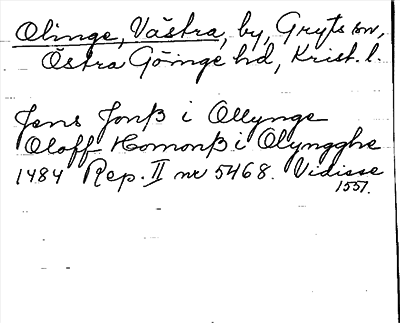 Olinge, Västra, by, Gryts sn,
Östra Göinge hd, Krist. l.
Jens Jonß i Ollynge
Oloff Homonß i Olyngghe
1484 Rep. II nr 5468. Vidisse
1551.